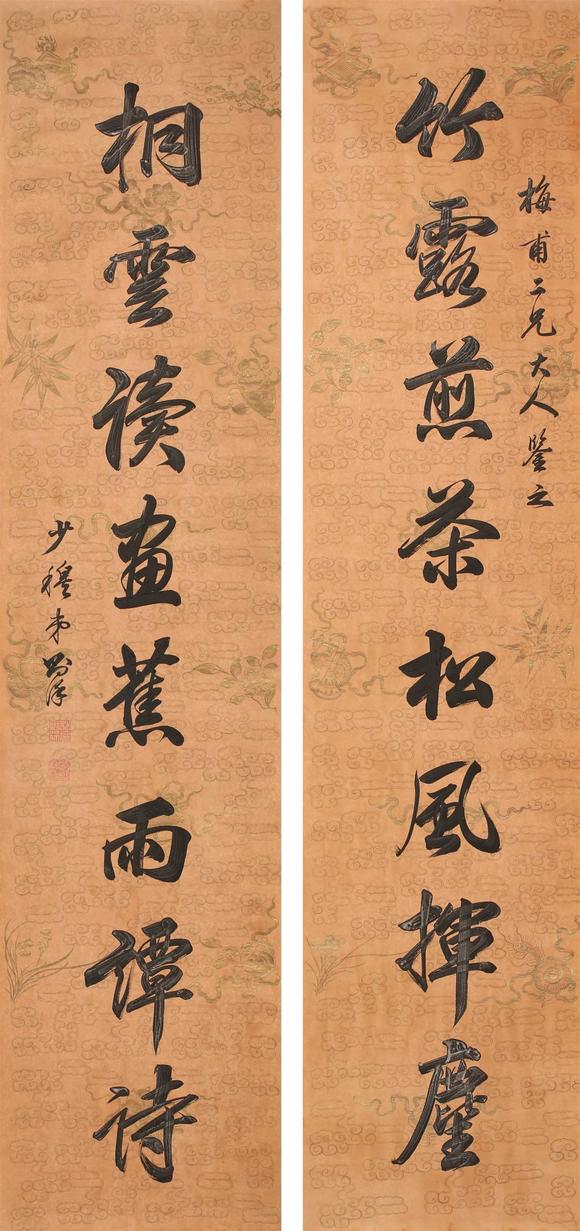 梅甫二兄大人鑒之
竹露煎茶松風揮麈
桐雲讀画蕉雨譚詩
少穆弟則徐